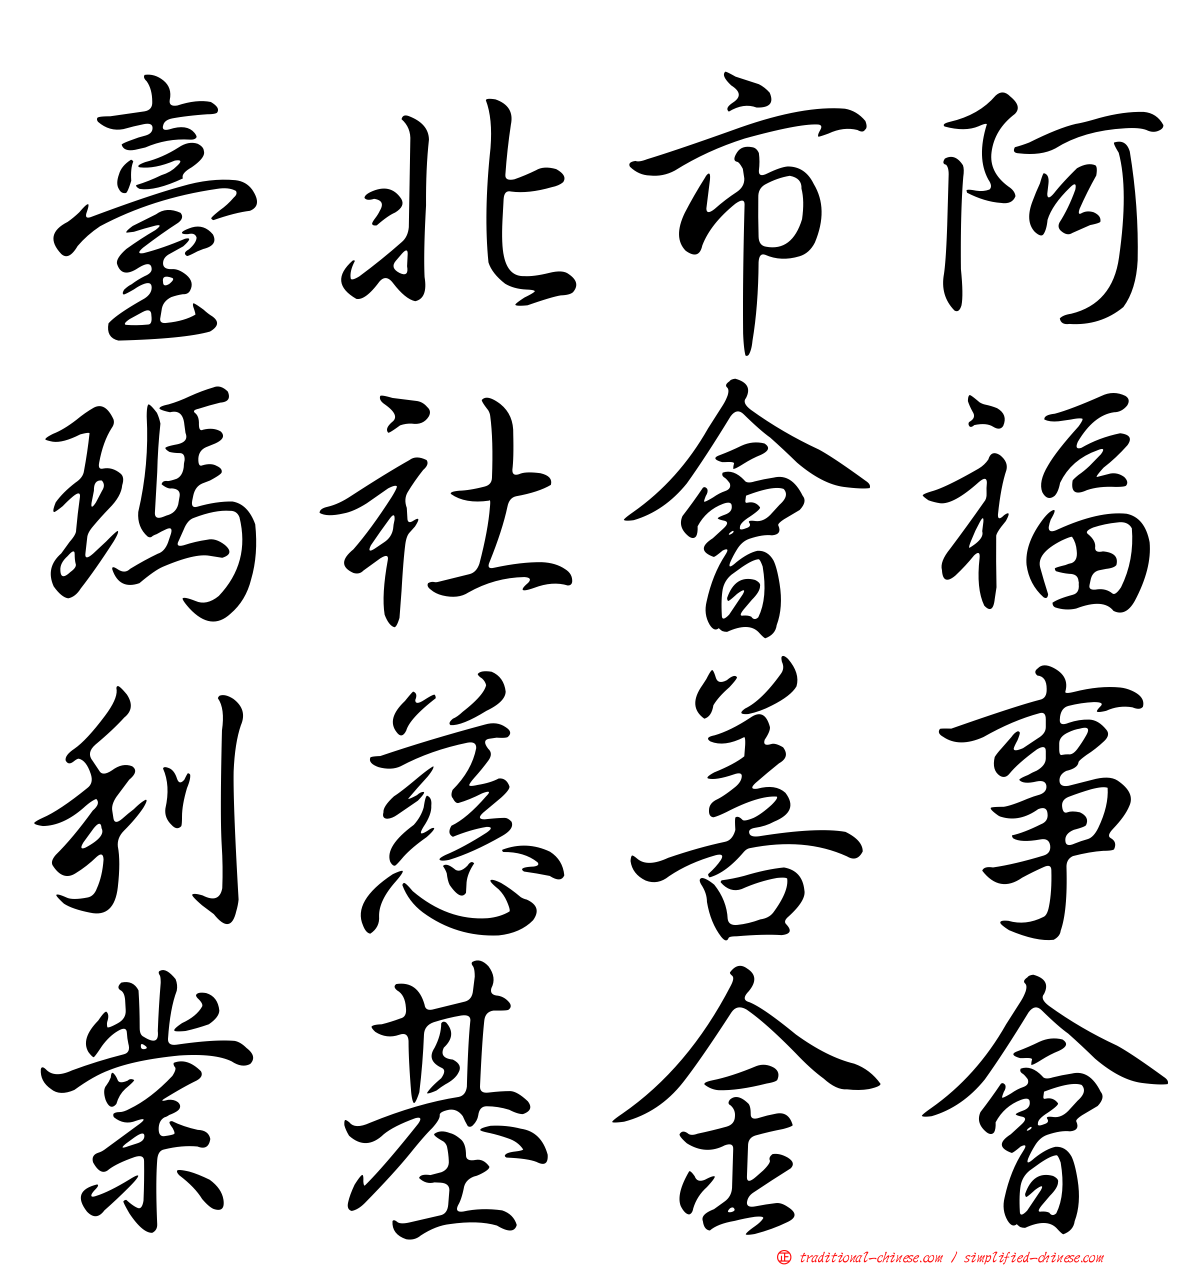 臺北市阿
瑪社會福
利慈善事
業基金會
正 traditional-chinese.com / simplified-chinese.com